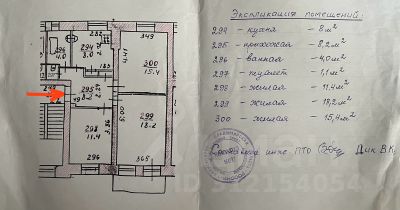 Экспликация помещений:
294 - кухня - 8 м²
295 - прихожая - 8,2 м²
296 - ванная - 4,0 м²
297 - туалет - 1,1 м²
298 - жилая - 11,4 м²
299 - жилая - 18,2 м²
300 - жилая - 15,4 м²
инж. ПТО Дик В.К.
349
300
15.4
4.41
294
296
4.0
295
8.2
298
11.4
3.86
5.00
299
18.2
296
365